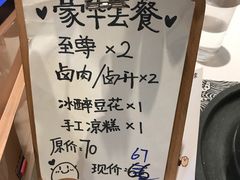 豪华套餐
至尊×2
卤肉/卤升×2
冰醉豆花×1
手工凉糕×1
原价:70
67
现价: